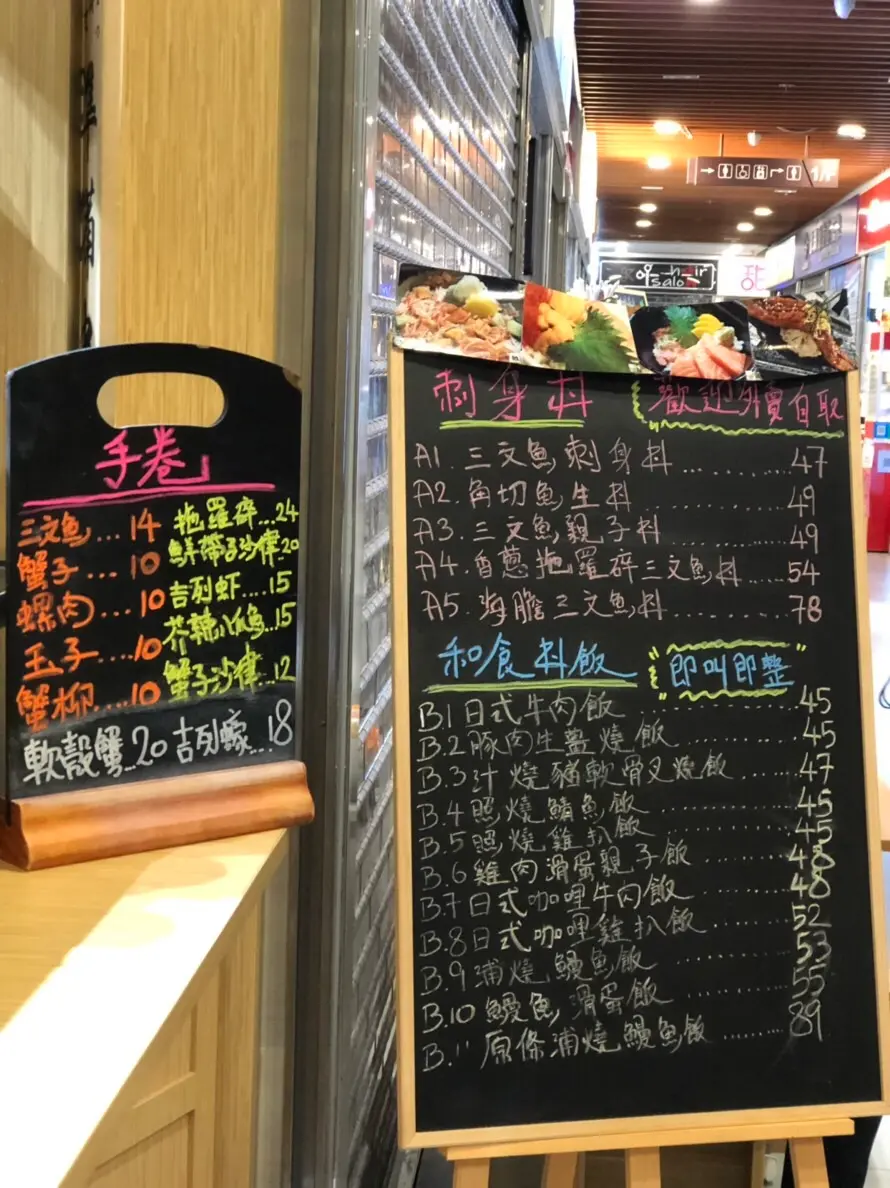 手卷
三文魚...14 拖羅碎...24
蟹子...10 鮮帶子沙律20
螺肉...10 吉列虾....15
玉子....10 芥辣八爪鱼..15
蟹柳....10 蟹子沙律...12
軟殼蟹...20 吉列蠔...18
刺身丼 歡迎外賣自取
A1. 三文魚刺身丼.........47
A2. 角切魚生丼.........49
A3. 三文魚親子丼.........49
A4. 香蔥拖羅碎三文魚丼....54
A5. 海膽三文魚丼.........78
和食丼飯 即叫即整
B1 日式牛肉飯.........45
B.2 豚肉生薑燒飯.........45
B.3 汁燒豬軟骨叉燒飯......47
B.4 照燒鯖魚飯.........45
B.5 照燒雞扒飯.........45
B.6 雞肉滑蛋親子飯.........48
B.7 日式咖哩牛肉飯.........48
B.8 日式咖哩雞扒飯.........52
B.9 浦燒鰻魚飯.........53
B.10 鰻魚滑蛋飯.........55
B.11 原條浦燒鰻魚飯........89
1/F
hair
salon